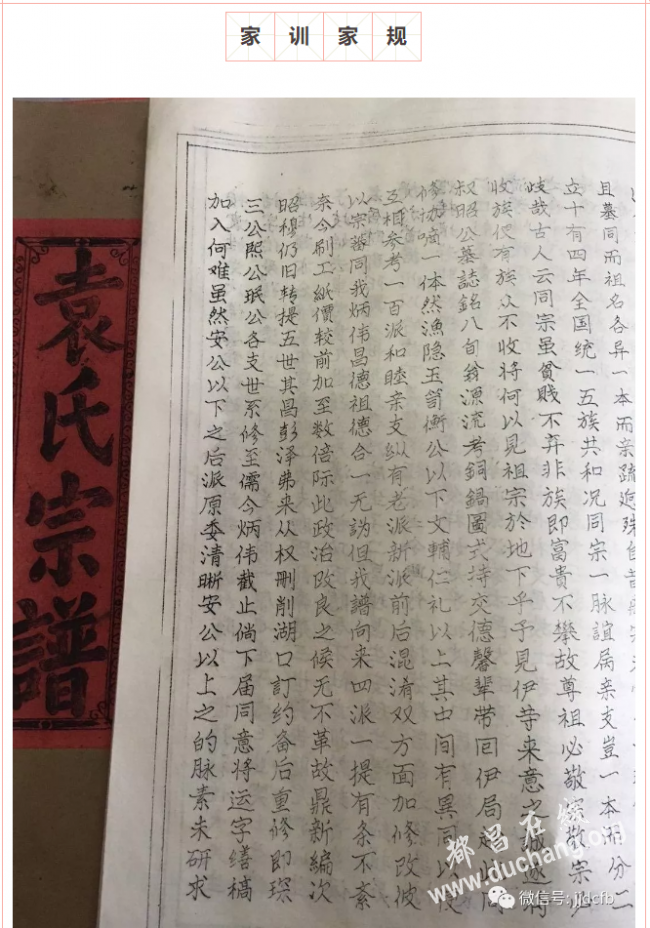 家训家规
袁氏宗譜
且墓同而祖名各异一本而亲疏迥殊自昔
立十有四年全国统一五族共和况同宗一脉誼属亲支豈一本而分二
歧哉古人云同宗虽貧贱不弃非族即富貴不攀故尊祖必敬宗敬宗必
收族使有族众不收将何以見祖宗於地下乎予見伊等来意之誠遂将
叔昭公墓誌銘八旬翁源流考銅鍋圖式持交德馨輩带回伊局
一体然漁隐玉衡公以下文輔仁礼以上其中间有異同以
互相参考一百派和睦亲支纵有老派新派前后混淆双方面加修改彼
以宗譜同我炳伟昌德祖德合一无訛但我譜向来四派一提有条不紊
奈今刷工紙價較前加至数倍际此政治改良之候无不革故鼎新編次
昭穆仍旧转提五世其昌彭泽弗来从权删削湖口訂约备后重修即琛
三公熙公珉公各支世系修至儒今炳伟截止倘下届同意将运字缮稿
加入何难虽然安公以下之后派原委清晰安公以上之的脉素未研求
都昌在线
www.duchang.org
微信号: jjdcfb